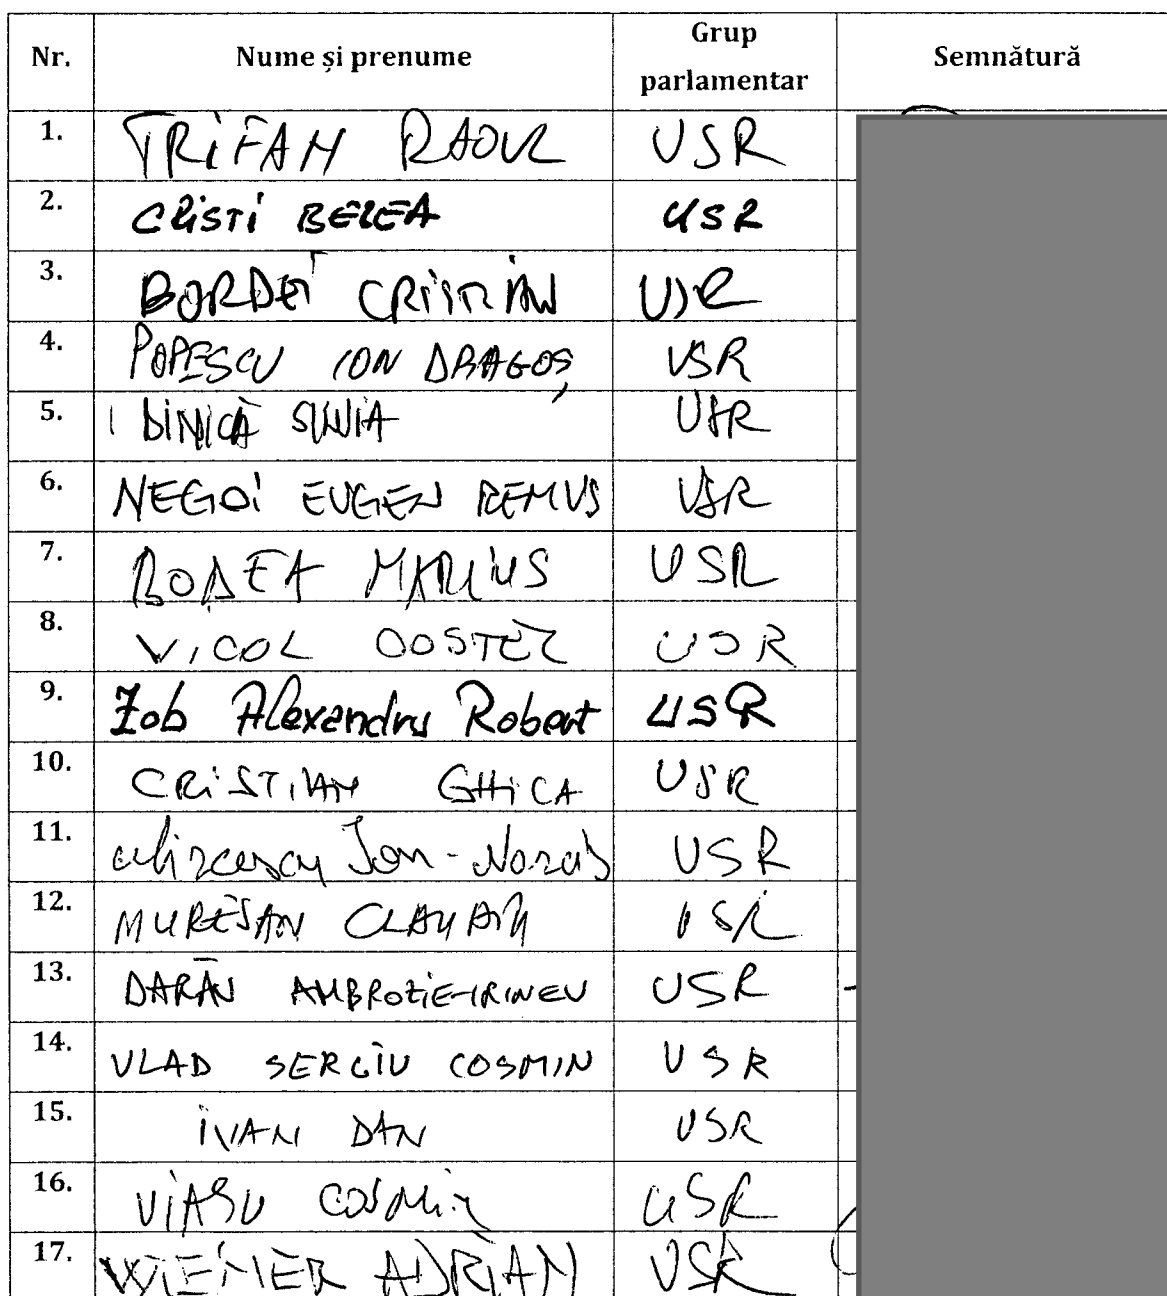 Nr. Nume și prenume Grup parlamentar Semnătură
1. TRIFAN RAOUL USR
2. CRISTI BEREA USR
3. BORDEI CRISTIAN USR
4. POPESCU ION DRAGOȘ USR
5. DINICĂ SILVIA USR
6. NEGOI EUGEN REMUS USR
7. BODEA MARIUS USR
8. VICOL COSTEL USR
9. Zob Alexandru Robert USR
10. CRISTIAN GHICA USR
11. Mircescu Ion-Narcis USR
12. MUREȘAN CLAUDIU USR
13. DARĂU AMBROZIE-IRINEU USR
14. VLAD SERGIU COSMIN USR
15. IVAN DAN USR
16. VIAȘU COSMIN USR
17. WIENER ADRIAN USR